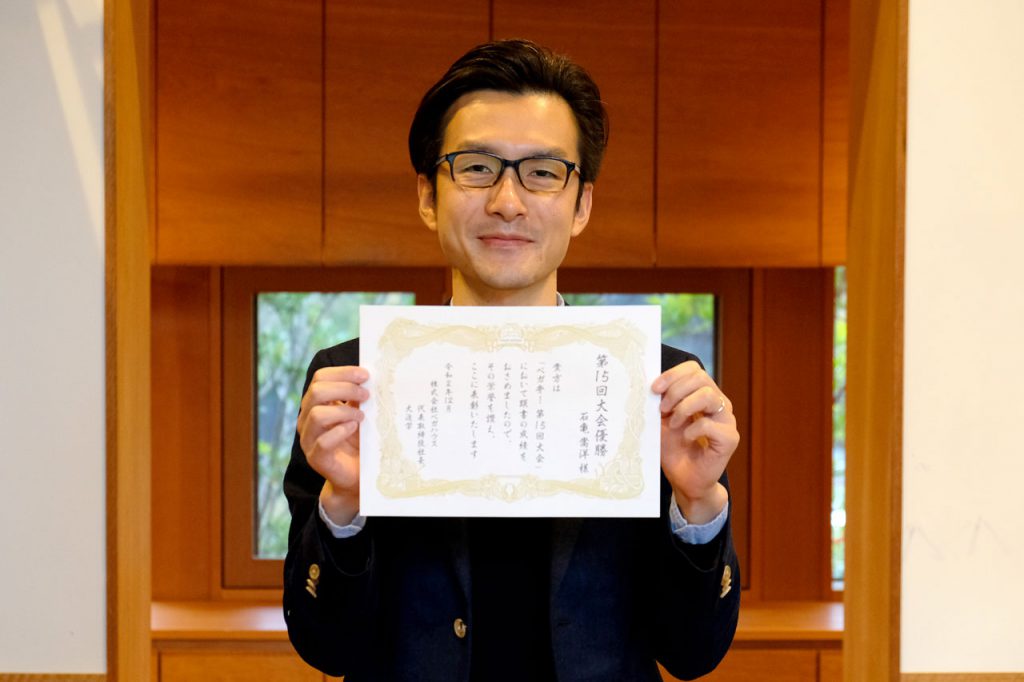 第15回大会優勝
石亀 嵩洋 様
貴方は
「ベガ卓!第15回大会」
において頭書の成績を
おさめましたので、
その栄誉を讃え、
ここに表彰いたします
令和2年12月
株式会社ベガハウス
代表取締役社長
大迫学